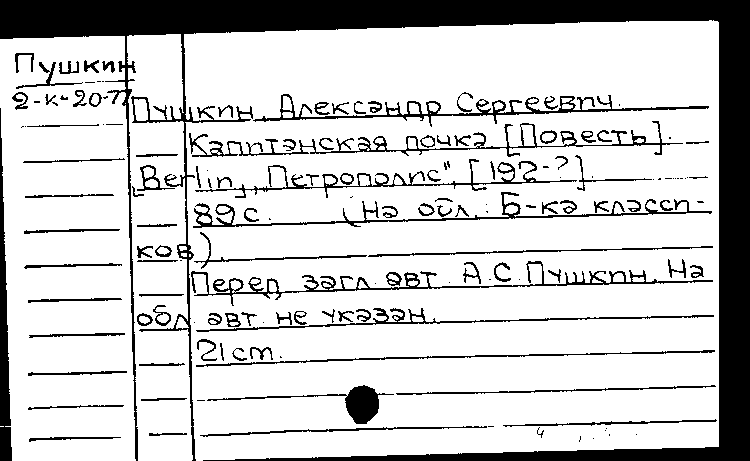 Пушкин
2-к-20-77
Пушкин, Александр Сергеевич.
Капитанская дочка [Повесть].
[Berlin], „Петрополис", [192-?].
89 с. (На обл.: Б-ка класси-
ков).
Перед загл. авт. А.С. Пушкин. На
обл. авт. не указан.
21 cm.